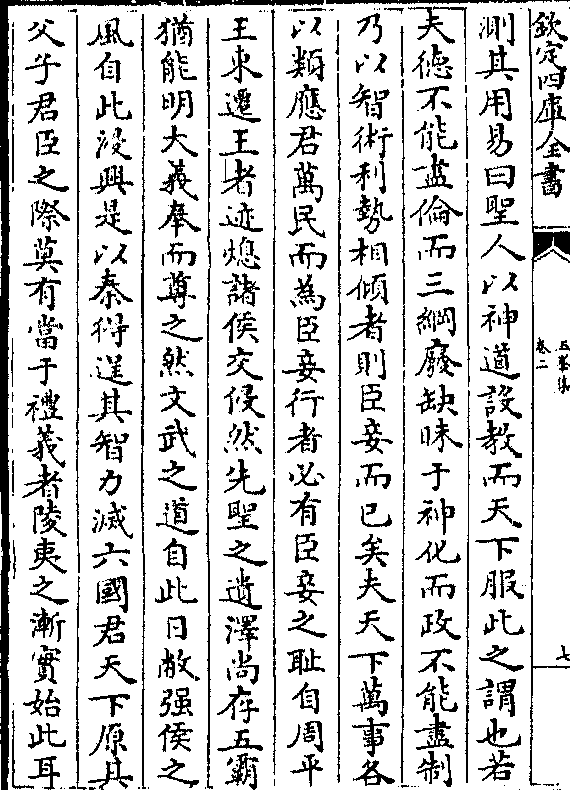 欽定四庫全書
五峯集
卷二
七
測其用易曰聖人以神道設教而天下服此之謂也若
夫德不能盡倫而三綱廢缺昧于神化而政不能盡制
乃以智術利勢相傾者則臣妾而已矣夫天下萬事各
以類應君萬民而為臣妾行者必有臣妾之恥自周平
王東遷王者迹熄諸侯交侵然先聖之遺澤尚存五霸
猶能明大義奉而尊之然文武之道自此日敝强侯之
風自此浸興是以秦得逞其智力滅六國君天下原其
父子君臣之際莫有當于禮義者陵夷之漸實始此耳